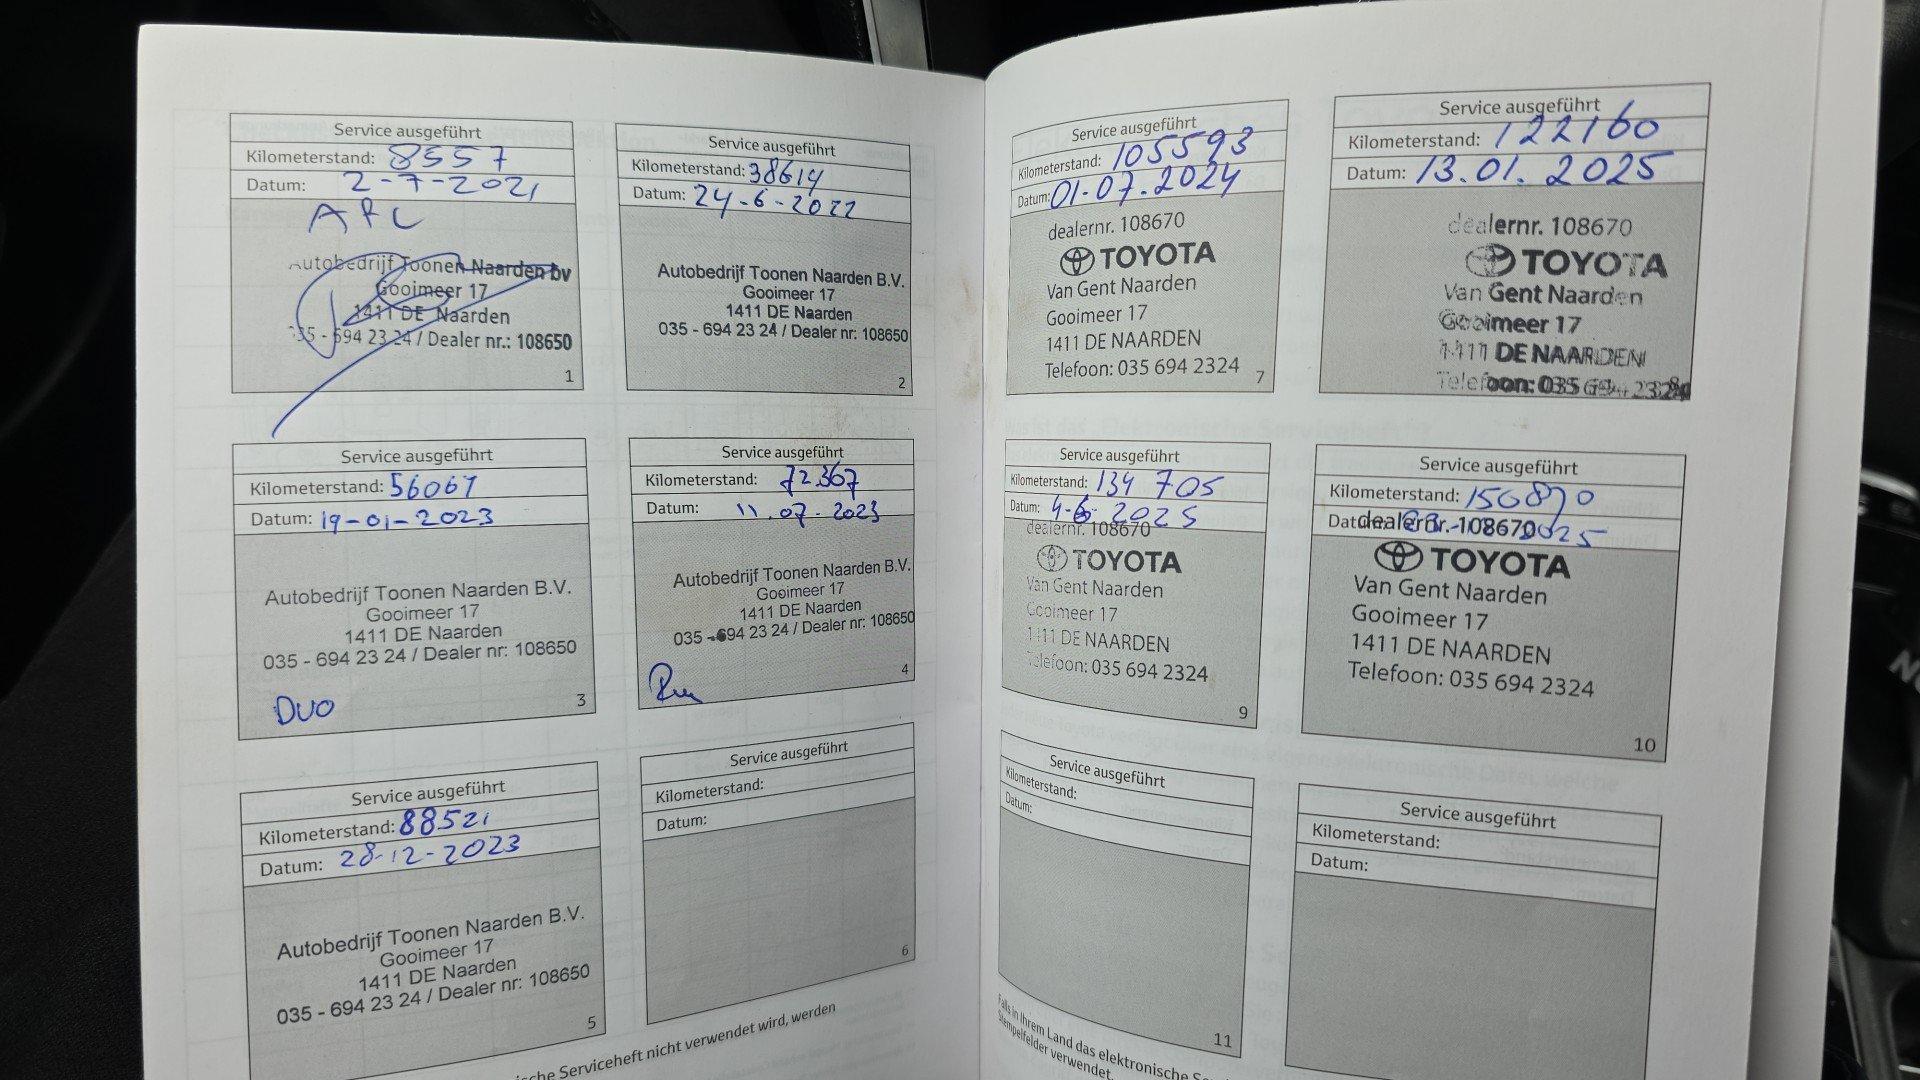 Service ausgeführt
Kilometerstand: 8557
Datum: 2-7-2021
Autobedrijf Toonen Naarden bv
Gooimeer 17
1411 DE Naarden
035 - 694 23 24 / Dealer nr.: 108650
1
Service ausgeführt
Kilometerstand: 38614
Datum: 24-6-2022
Autobedrijf Toonen Naarden B.V.
Gooimeer 17
1411 DE Naarden
035 - 694 23 24 / Dealer nr: 108650
2
Service ausgeführt
Kilometerstand: 56061
Datum: 19-01-2023
Autobedrijf Toonen Naarden B.V.
Gooimeer 17
1411 DE Naarden
035 - 694 23 24 / Dealer nr: 108650
DUO
3
Service ausgeführt
Kilometerstand: 72367
Datum: 11.07-2023
Autobedrijf Toonen Naarden B.V.
Gooimeer 17
1411 DE Naarden
035 - 694 23 24 / Dealer nr: 108650
4
Service ausgeführt
Kilometerstand: 88521
Datum: 28-12-2023
Autobedrijf Toonen Naarden B.V.
Gooimeer 17
1411 DE Naarden
035 - 694 23 24 / Dealer nr: 108650
5
Service ausgeführt
Kilometerstand:
Datum:
6
che Serviceheft nicht verwendet wird, werden
Service ausgeführt
Kilometerstand: 105593
Datum: 01-07.2024
dealernr. 108670
TOYOTA
Van Gent Naarden
Gooimeer 17
1411 DE NAARDEN
Telefoon: 035 694 2324
7
Service ausgeführt
Kilometerstand: 122160
Datum: 13.01.2025
dealernr. 108670
TOYOTA
Van Gent Naarden
Gooimeer 17
1411 DE NAARDEN
Telefoon: 035 694 2324
Service ausgeführt
Kilometerstand: 134 705
Datum: 4-6-2025
dealernr. 108670
TOYOTA
Van Gent Naarden
Gooimeer 17
1411 DE NAARDEN
Telefoon: 035 694 2324
9
Service ausgeführt
Kilometerstand: 150870
Datum:
dealernr. 108670
TOYOTA
Van Gent Naarden
Gooimeer 17
1411 DE NAARDEN
Telefoon: 035 694 2324
10
Service ausgeführt
Kilometerstand:
Datum:
11
Service ausgeführt
Kilometerstand:
Datum:
Falls in Ihrem Land das elektronische
Stempelfelder verwendet.